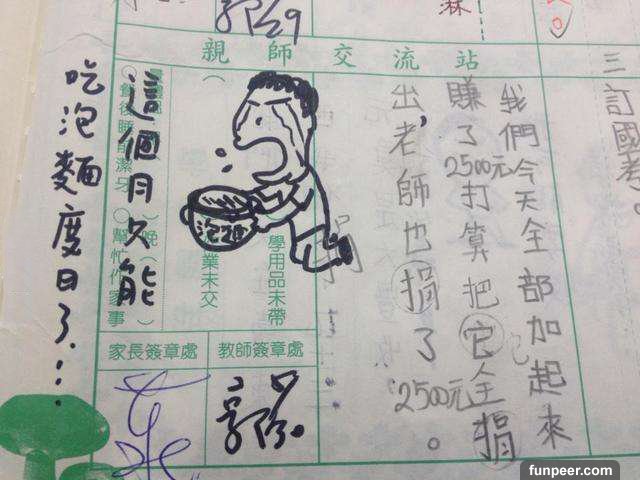 森
親師交流站
三訂國考。
我們今天全部加起來
賺了2500元打算把它全捐
出,老師也捐了2500元。
學用品未帶
業未交
泡麵
這個月只能
吃泡麵度日了...
餐後睡前潔牙
晚
幫忙作家事
教師簽章處
家長簽章處
funpeer.com